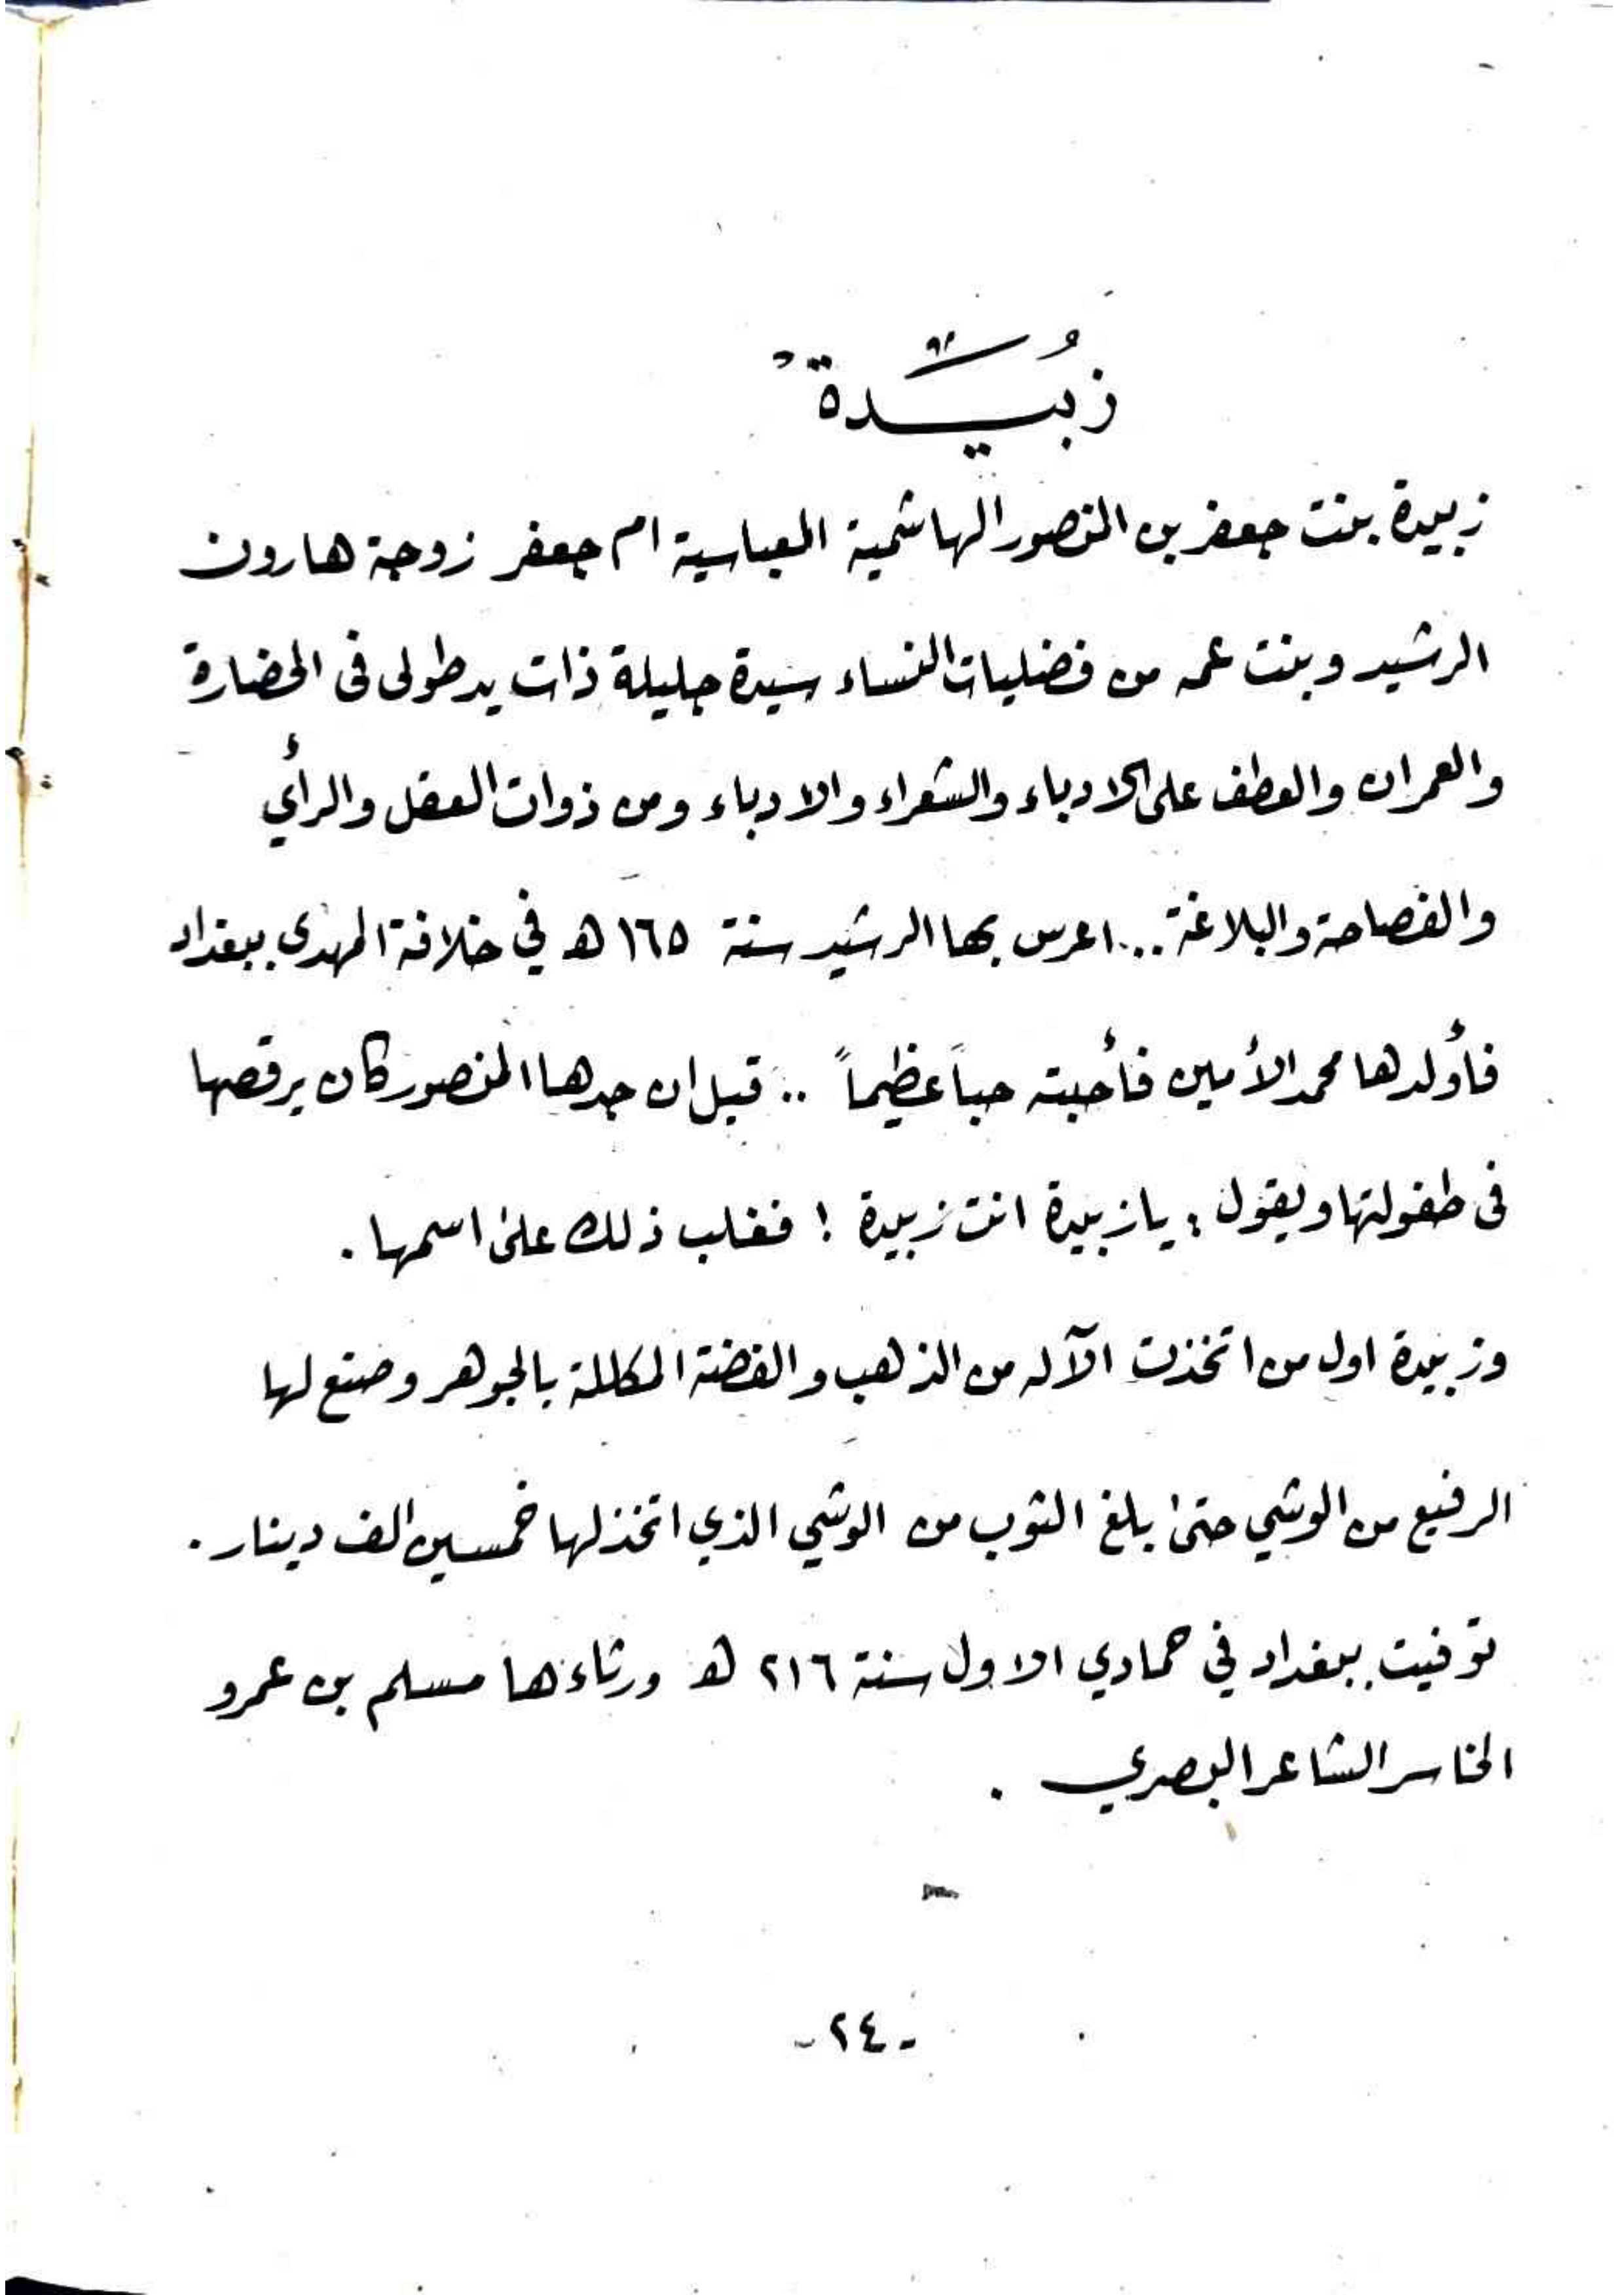 زُبَيْدة
زبيدة بنت جعفر بن المنصور الهاشمية العباسية ام جعفر زوجة هارون
الرشيد وبنت عمه من فضليات النساء سيدة جليلة ذات يد طولى فى الحضارة
والعمران والعطف على الادباء والشعراء والادباء ومن ذوات العقل والرأي
والفصاحة والبلاغة .. اعرس بها الرشيد سنة ١٦٥ هـ في خلافة المهدي ببغداد
فأولدها محمد الأمين فأحبته حباً عظيماً .. قيل ان جدها المنصور كان يرقصها
فى طفولتها ويقول : يا زبيدة انت زبيدة ! فغلب ذلك على اسمها .
وزبيدة اول من اتخذت الآله من الذهب والفضة المكللة بالجوهر وصنع لها
الرفيع من الوشي حتى بلغ الثوب من الوشي الذي اتخذ لها خمسين الف دينار .
توفيت ببغداد في جمادي الاول سنة ٢١٦ هـ ورثاءها مسلم بن عمرو
الخاسر الشاعر البصري .
- ٢٤ -